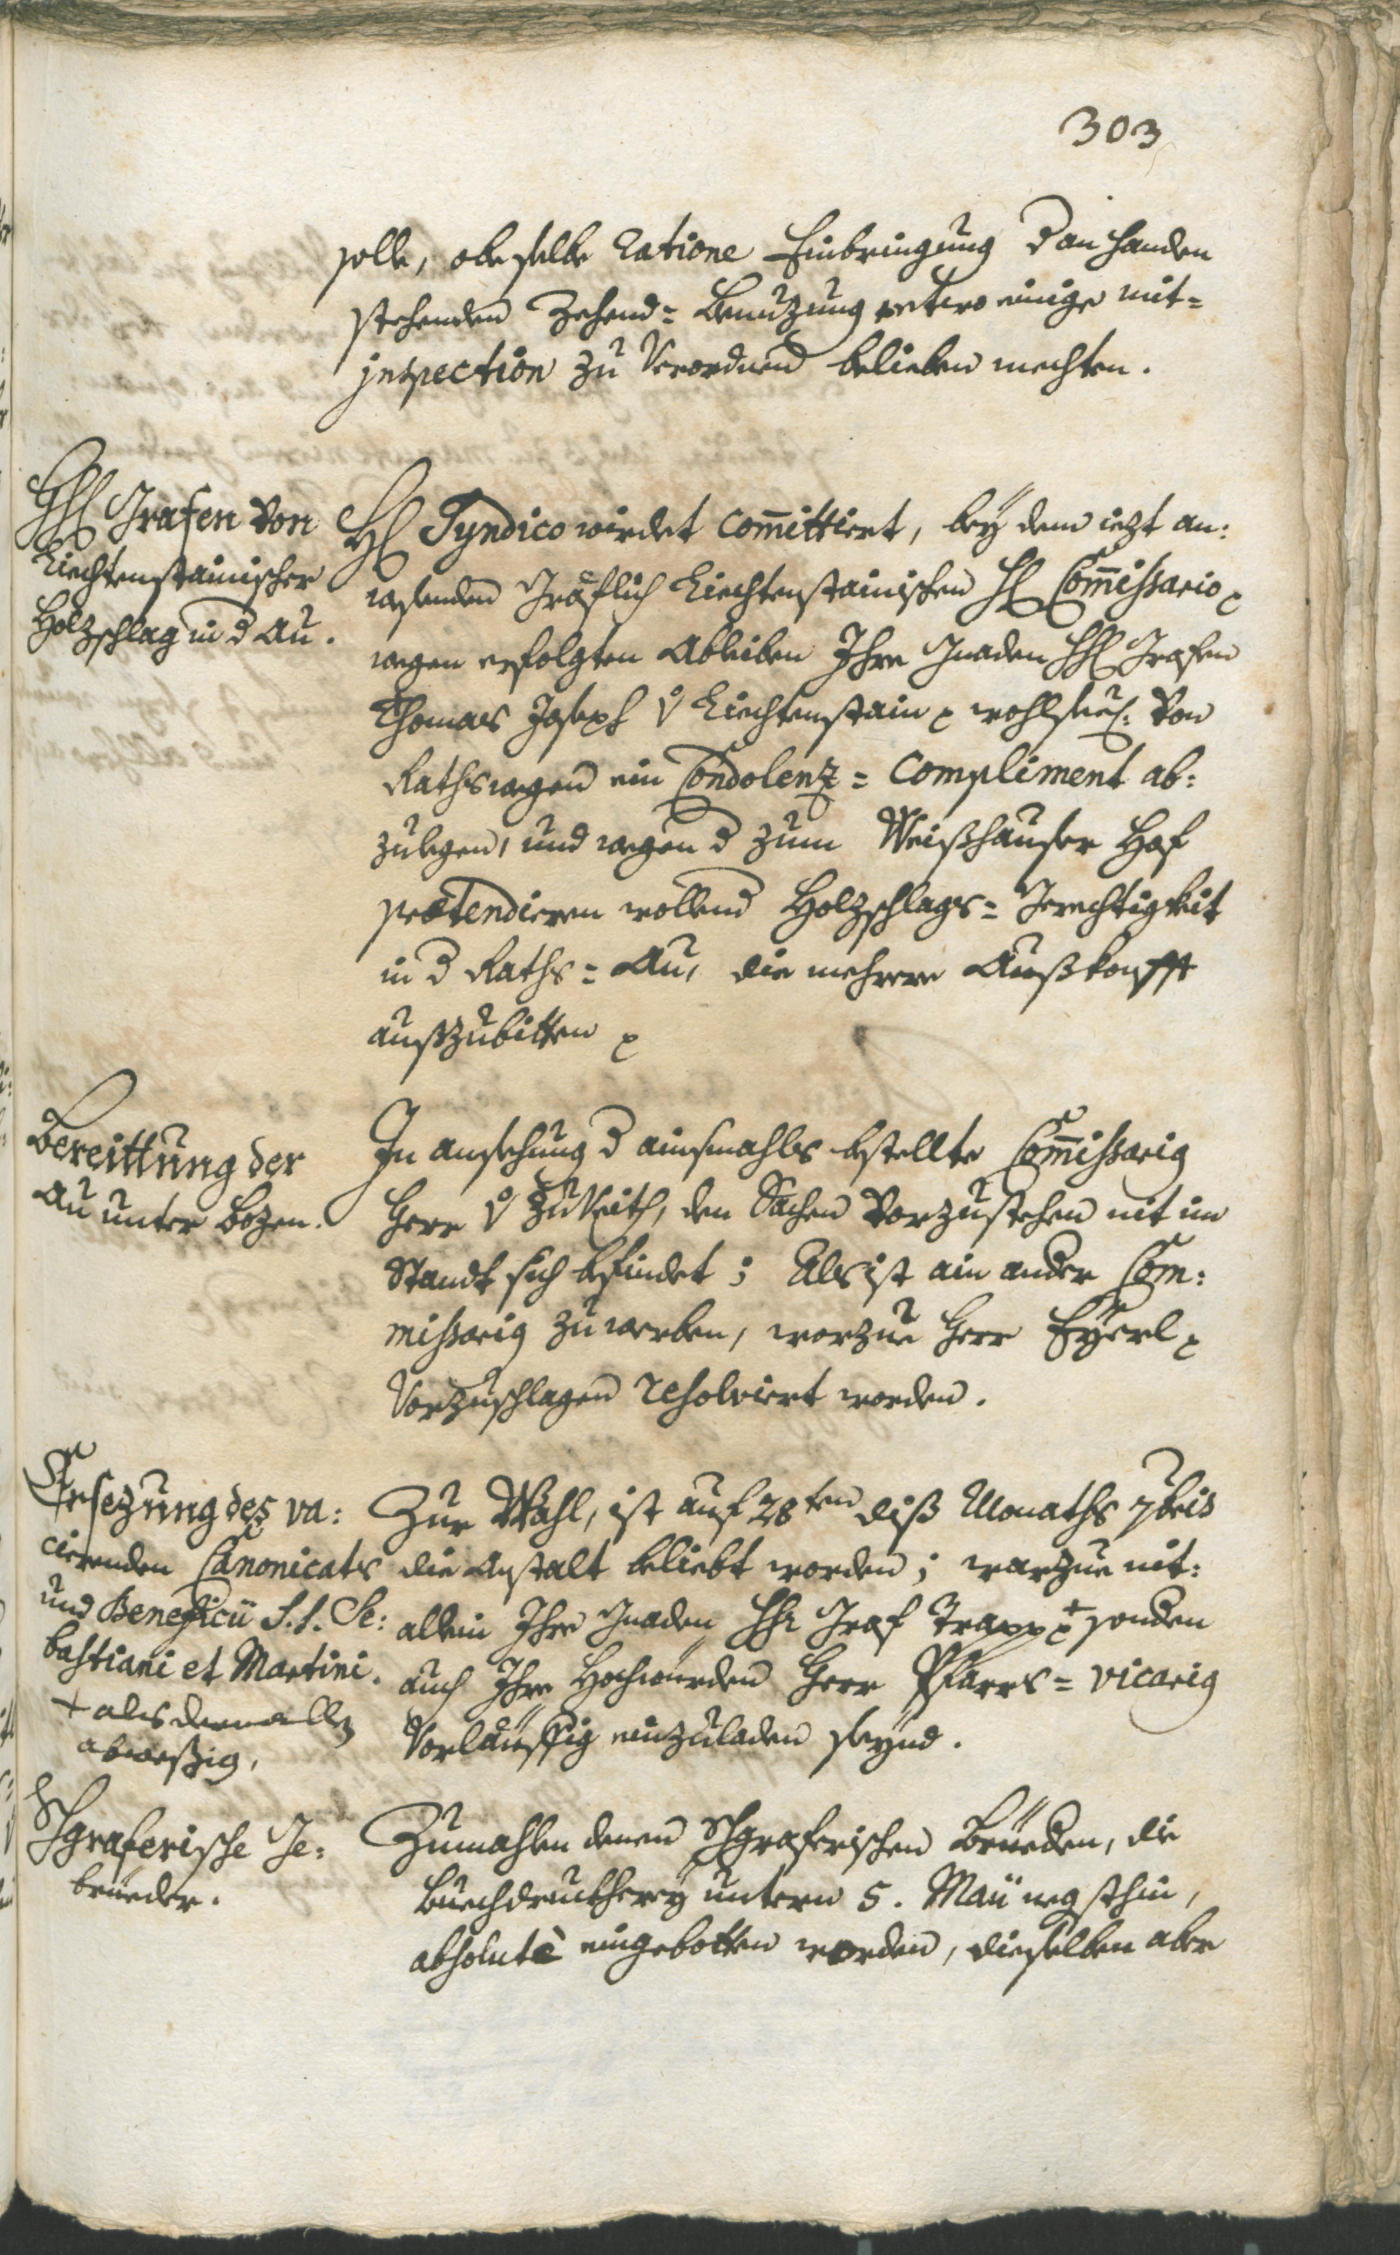 303
solle, ob eselbe Ratione Einbringung d an handen
stehenden Zehend= Benuzung weters einige mit=
inspection zu Verordnen belieben mechten.
HH Grafen von
Liechtenstainischer
Holzschlag in d Au.
H Syndico wirdet com̄ittiert, bey dem iezt an:
wesenden Gräflich Liechtenstainischen H Com̄issario
wegen erfolgten Ableiben Ihre Gnaden HH Grafen
Thomas Joseph v Liechtenstain wohlseel: Von
Rathswegen ein Condolenz= Compliment ab:
zulegen, und wegen d zum Weißhauser Hof
prætendieren wollend Holzschlags= Gerechtigkeit
in d Raths= Au, die mehrere Außkonfft
außzubitten
Bereittung der
Au unter Bozen.
In ansehung d ainsmahls bestellte Com̄issarig
Herr v Zu Veith, den Sachen Vorzustehen nit im
Standt sich befindet; Als ist ain ander Com:
missarig zu werben, worzue Herr Eyerl
Vorzuschlagen resolviert worden.
Ersezung des va:
cierenden Canonicats
und Beneficii S.S. Se:
bastiani et Martini.
+ als dermallen
abweßig.
Zur Wahl, ist auf 28ten diß Monaths 7bris
die Anstalt beliebt worden; warzue nit:
allein Ihre Gnaden HH Graf Trapp + sonden
auch Ihre Hochwürden Herr Pfarrs= vicarig
Vorläuffig einzuladen seynd.
Sgraferische Ge:
brüeder.
Zumahlen denen Sgraferischen Brüeden, die
Buechdruckherey untern 5. Maii negsthin,
absolutè eingebotten worden, dieselben aber